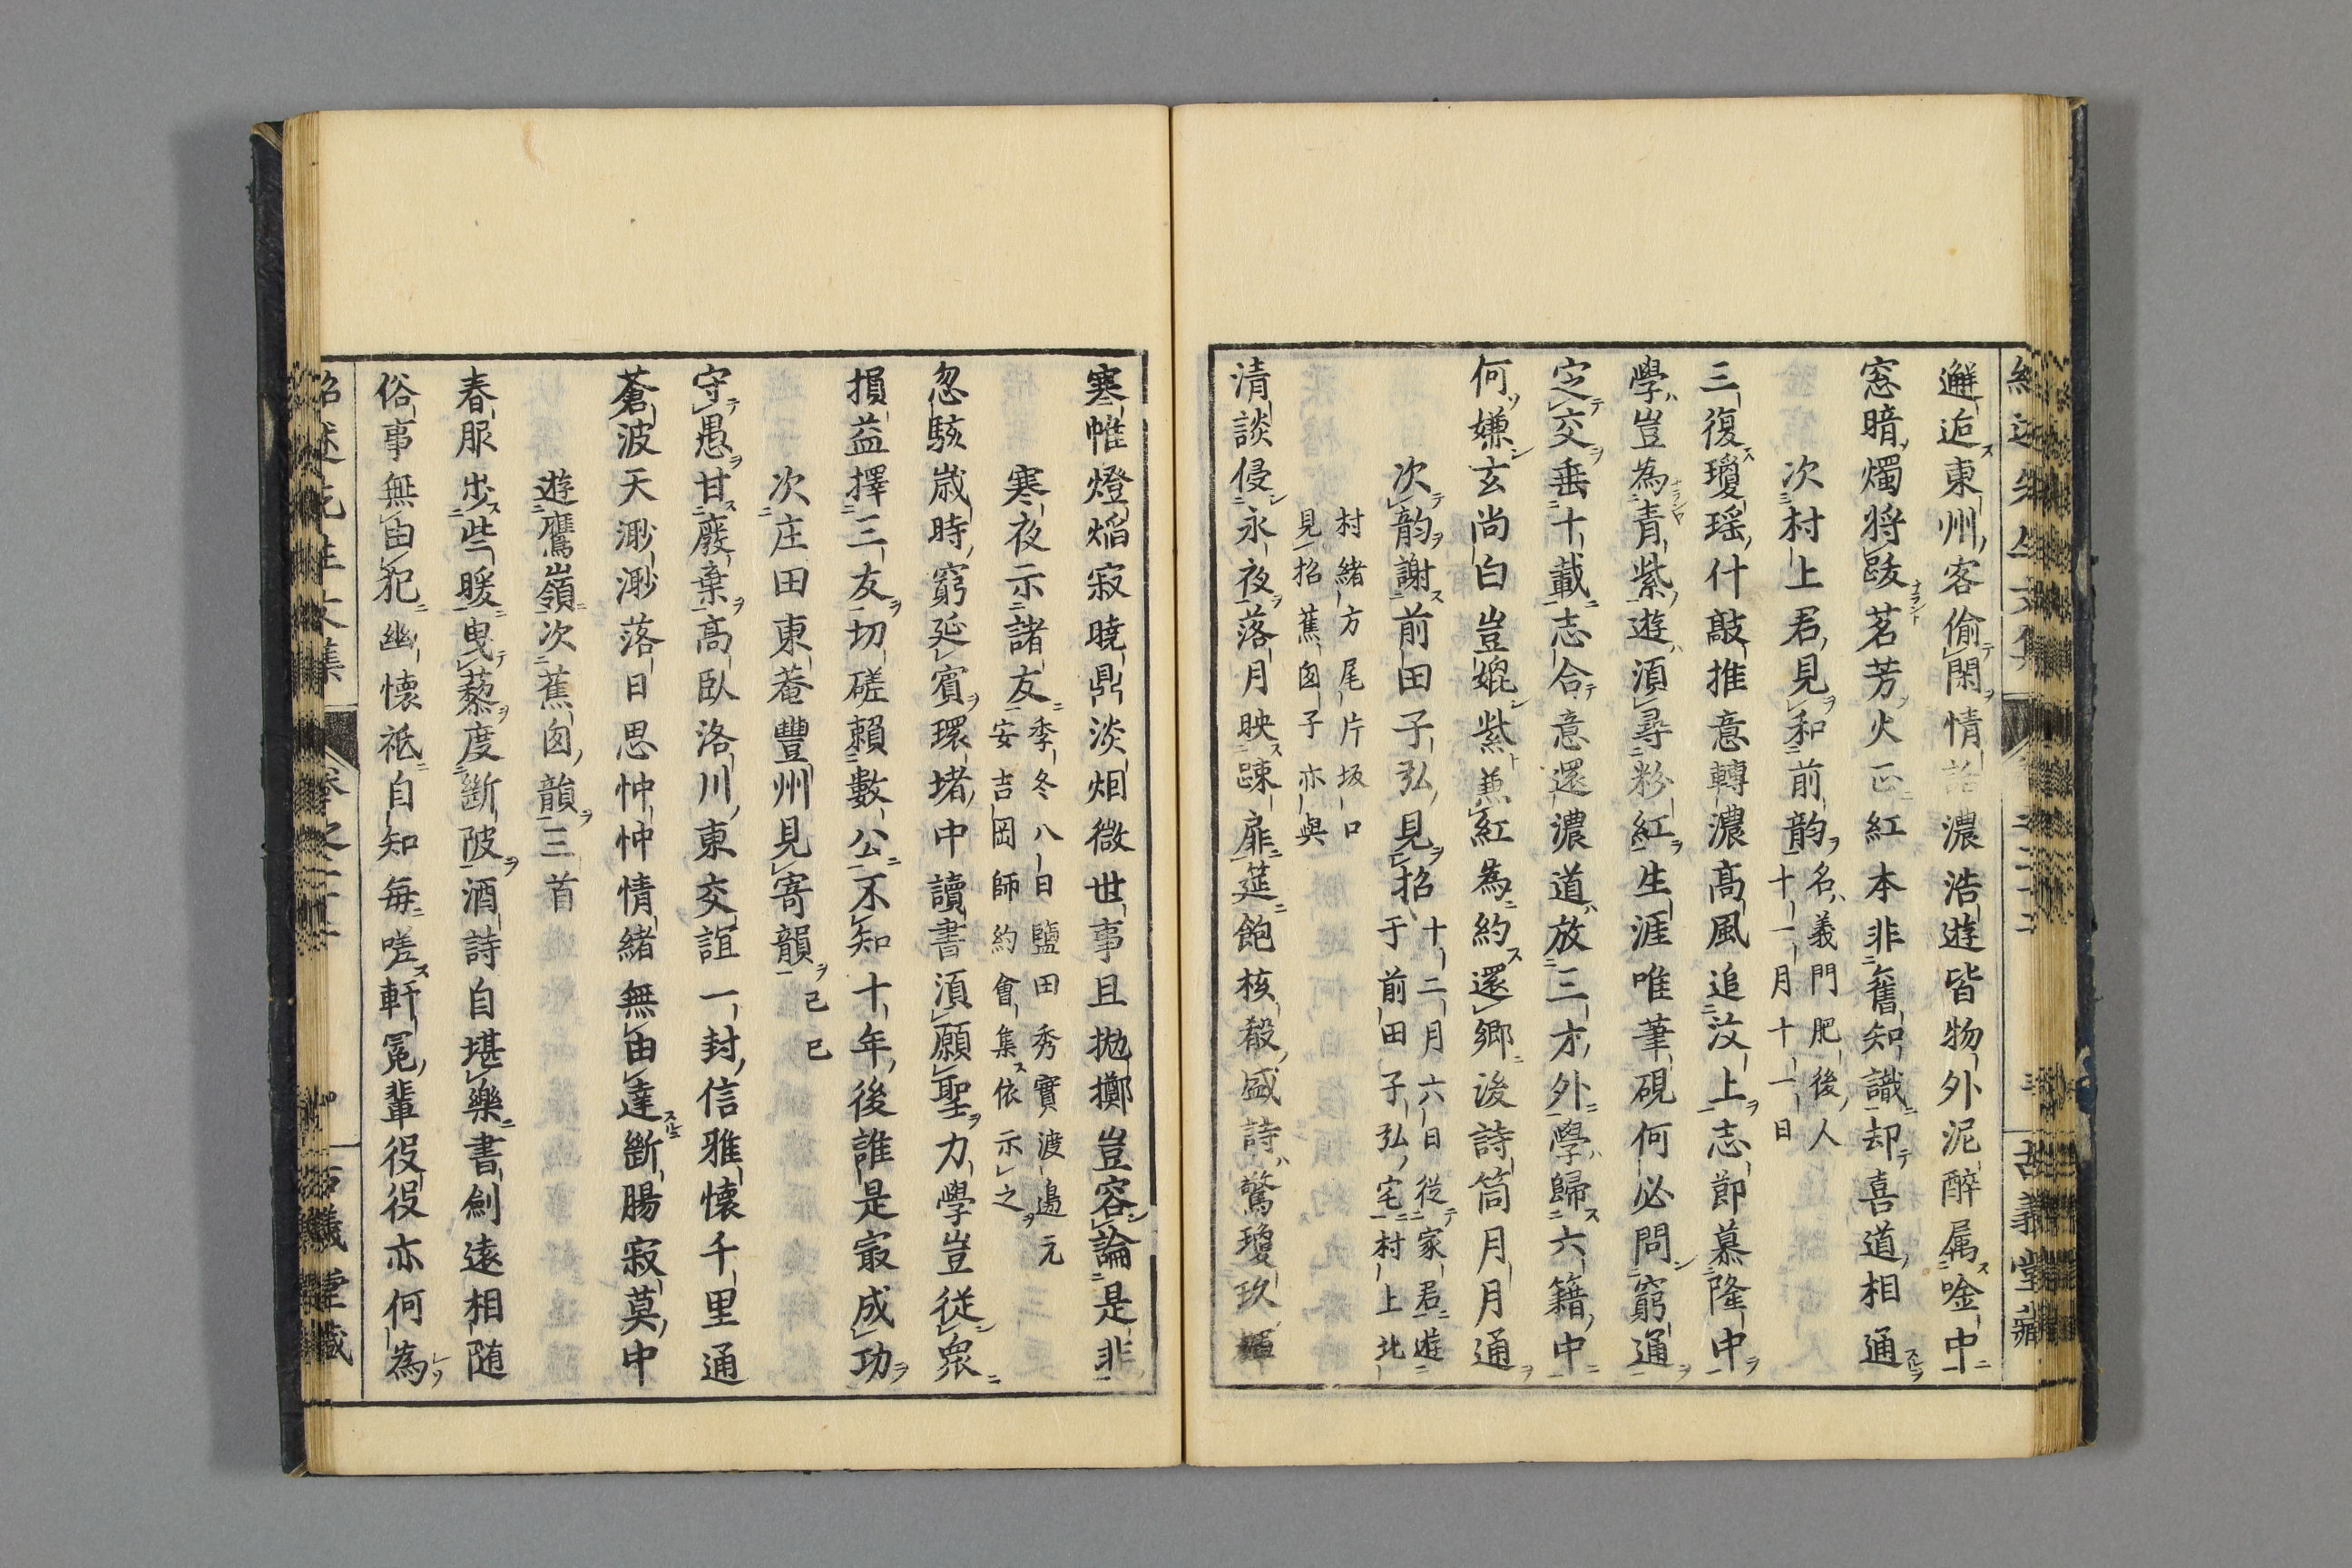 邂逅東州客偷閑情話濃浩遊皆物外泥醉属唫中
窓暗燭將跋茗芳火正紅本非舊知識却喜道相通
次村上君見和前韵
名義門肥後人
十一月十一日
三復瓊瑶什敲推意轉濃高風追汶上志節慕隆中
學豈為青紫遊須尋粉紅生涯唯筆硯何必問窮通
定交垂十載志合意還濃道放三才外學歸六籍中
何嫌玄尚白豈媿紫兼紅為約還郷後詩筒月月通
次韵謝前田子弘見招
十二月六日從家君遊
于前田子弘宅村上北
村緒方尾片坂口
見招蕉囱子亦與
清談侵永夜落月映疎扉筵飽核殽盛詩驚瓊玖
寒帷燈焔寂曉鼎淡烟微世事且拋擲豈容論是非
寒夜示諸友
季冬八日鹽田秀實渡邉元
安吉岡師約會集依示之
忽駭歳時窮延賓環堵中讀書須願聖力學豈従衆
損益擇三友切磋賴數公不知十年後誰是㝡成功
次庄田東菴豐州見寄韻
己巳
守愚甘廢棄高臥洛川東交誼一封信雅懷千里通
蒼波天渺渺落日思忡忡情緒無由達斷腸寂莫中
遊鷹嶺次蕉囱韻三首
春服步些暖曳藜度斷陂酒詩自堪樂書劍遠相随
俗事無由犯幽懷祇自知毎嗟軒冕輩役役亦何為